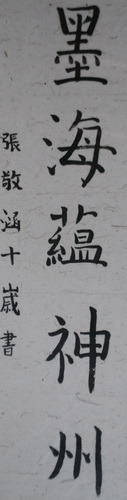 墨海蘊神州
張敬涵十歲書